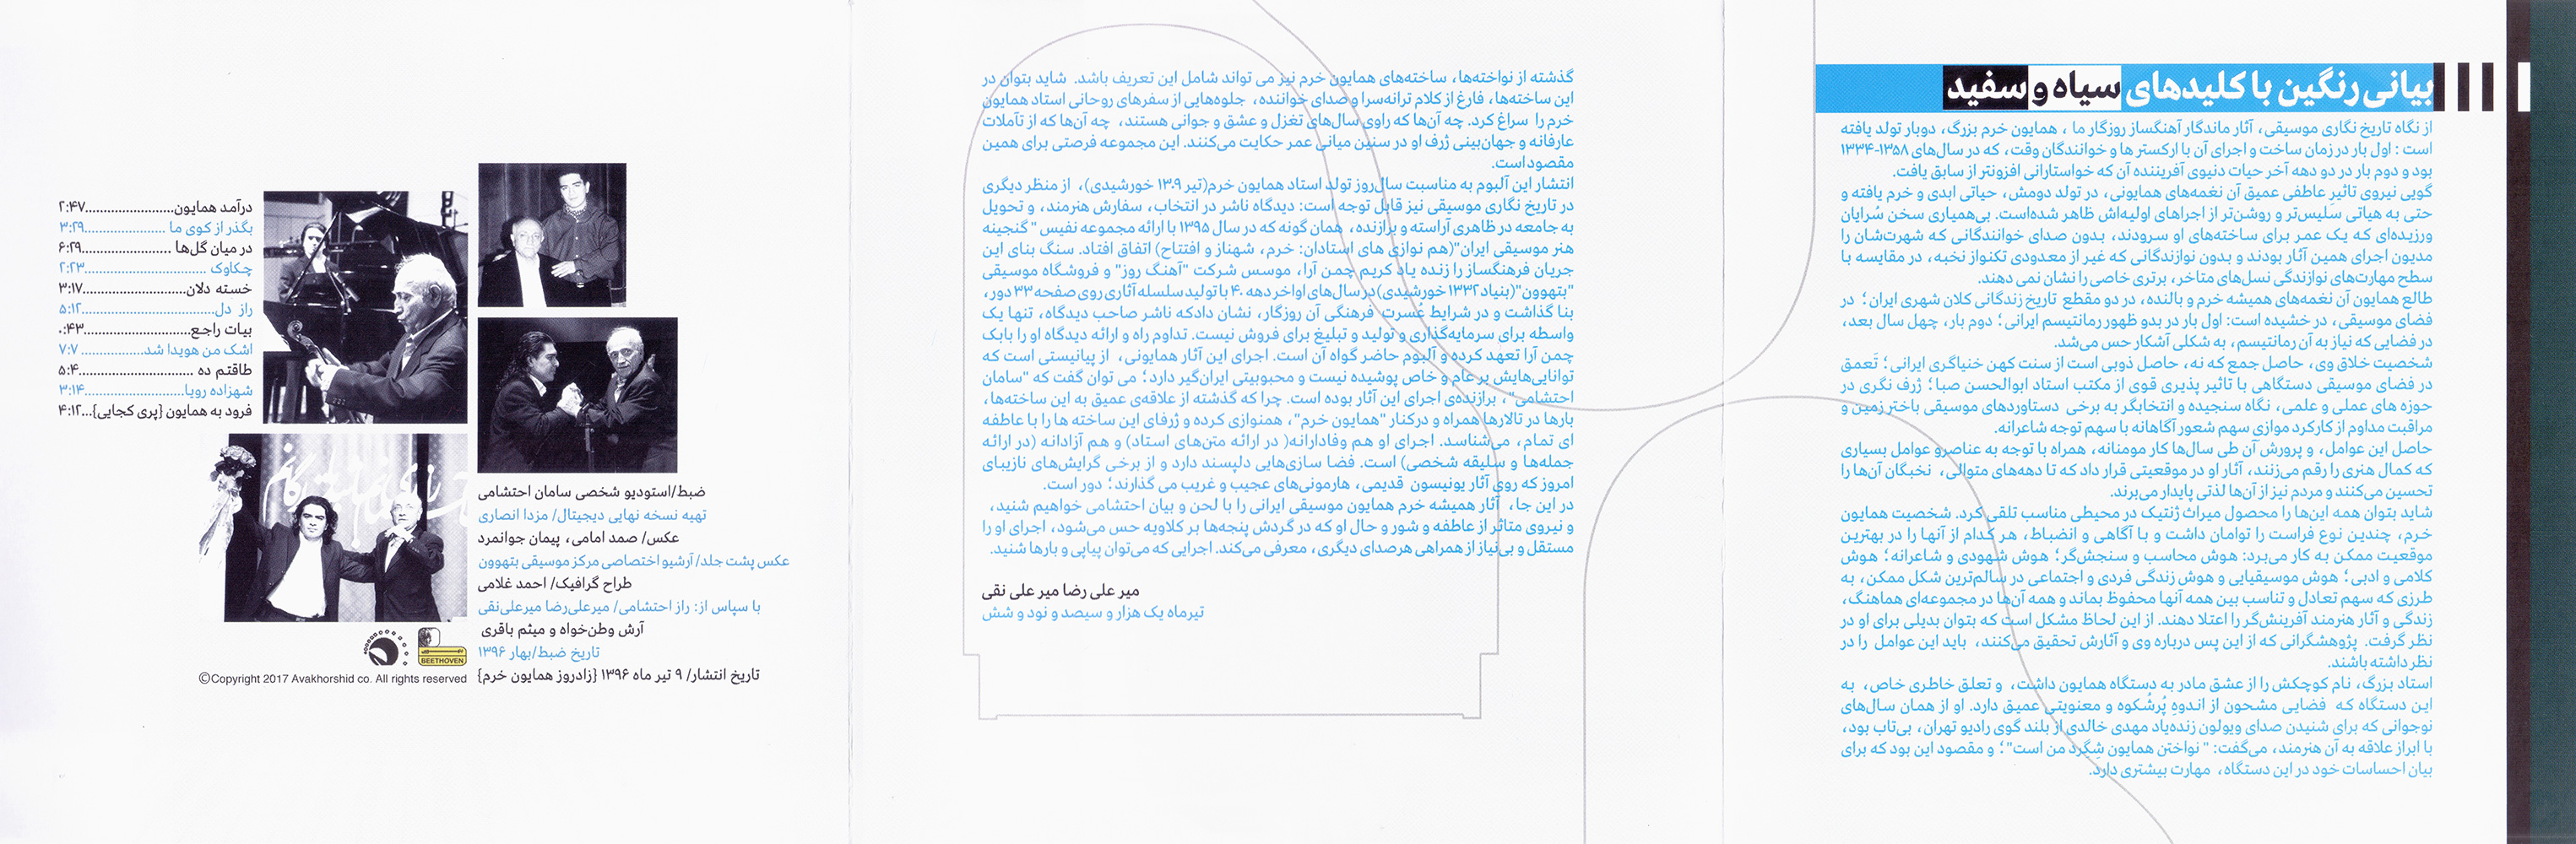 بیانی رنگین با کلیدهای سیاه و سفید
از نگاه تاریخ نگاری موسیقی، آثار ماندگار آهنگساز روزگار ما ، همایون خرم بزرگ، دوبار تولد یافته
است : اول بار در زمان ساخت و اجرای آن با ارکستر ها و خوانندگان وقت، که در سال‌های ۱۳۵۸-۱۳۳۴
بود و دوم بار در دو دهه آخر حیات دنیوی آفریننده آن که خواستارانی افزونتر از سابق یافت.
گویی نیروی تاثیر عاطفی عمیق آن نغمه‌های همایونی، در تولد دومش، حیاتی ابدی و خرم یافته و
حتی به هیاتی سَلیس‌تر و روشن‌تر از اجراهای اولیه‌اش ظاهر شده‌است. بی‌همیاری سخن سُرایان
ورزیده‌ای که یک عمر برای ساخته‌های او سرودند، بدون صدای خوانندگانی که شهرت‌شان را
مدیون اجرای همین آثار بودند و بدون نوازندگانی که غیر از معدودی تکنواز نخبه، در مقایسه با
سطح مهارت‌های نوازندگی نسل‌های متاخر، برتری خاصی را نشان نمی دهند.
طالع همایون آن نغمه‌های همیشه خرم و بالنده، در دو مقطع تاریخ زندگانی کلان شهری ایران؛ در
فضای موسیقی، در خشیده است: اول بار در بدو ظهور رمانتیسم ایرانی؛ دوم بار، چهل سال بعد،
در فضایی که نیاز به آن رمانتیسم، به شکلی آشکار حس می‌شد.
شخصیت خلاق وی، حاصل جمع که نه، حاصل ذوبی است از سنت کهن خنیاگری ایرانی؛ تَعمق
در فضای موسیقی دستگاهی با تاثیر پذیری قوی از مکتب استاد ابوالحسن صبا؛ ژرف نگری در
حوزه های عملی و علمی، نگاه سنجیده و انتخابگر به برخی دستاوردهای موسیقی باختر زمین و
مراقبت مداوم از کارکرد موازی سهم شعور آگاهانه با سهم توجه شاعرانه.
حاصل این عوامل، و پرورش آن طی سال‌ها کار مومنانه، همراه با توجه به عناصرو عوامل بسیاری
که کمال هنری را رقم می‌زنند، آثار او در موقعیتی قرار داد که تا دهه‌های متوالی، نخبگان آن‌ها را
تحسین می‌کنند و مردم نیز از آن‌ها لذتی پایدار می‌برند.
شاید بتوان همه این‌ها را محصول میراث ژنتیک در محیطی مناسب تلقی کرد. شخصیت همایون
خرم، چندین نوع فراست را توامان داشت و با آگاهی و انضباط، هر کدام از آنها را در بهترین
موقعیت ممکن به کار می‌برد: هوش محاسب و سنجش‌گر؛ هوش شهودی و شاعرانه؛ هوش
کلامی و ادبی؛ هوش موسیقیایی و هوش زندگی فردی و اجتماعی در سالم‌ترین شکل ممکن، به
طرزی که سهم تعادل و تناسب بین همه آنها محفوظ بماند و همه آن‌ها در مجموعه‌ای هماهنگ،
زندگی و آثار هنرمند آفرینش‌گر را اعتلا دهند. از این لحاظ مشکل است که بتوان بدیلی برای او در
نظر گرفت. پژوهشگرانی که از این پس درباره وی و آثارش تحقیق می‌کنند، باید این عوامل را در
نظر داشته باشند.
استاد بزرگ، نام کوچکش را از عشق مادر به دستگاه همایون داشت، و تعلق خاطری خاص، به
این دستگاه که فضایی مشحون از اندوهِ پُرشُکوه و معنویتی عمیق دارد. او از همان سال‌های
نوجوانی که برای شنیدن صدای ویولون زنده‌یاد مهدی خالدی از بلند گوی رادیو تهران، بی‌تاب بود،
با ابراز علاقه به آن هنرمند، می‌گفت: " نواختن همایون شِگرد من است"؛ و مقصود این بود که برای
بیان احساسات خود در این دستگاه، مهارت بیشتری دارد.
گذشته از نواخته‌ها، ساخته‌های همایون خرم نیز می تواند شامل این تعریف باشد. شاید بتوان در
این ساخته‌ها، فارغ از کلام ترانه‌سرا و صدای خواننده، جلوه‌هایی از سفرهای روحانی استاد همایون
خرم را سراغ کرد. چه آن‌ها که راوی سال‌های تغزل و عشق و جوانی هستند، چه آن‌ها که از تأملات
عارفانه و جهان‌بینی ژرف او در سنین میانی عمر حکایت می‌کنند. این مجموعه فرصتی برای همین
مقصود است.
انتشار این آلبوم به مناسبت سال‌روز تولد استاد همایون خرم(تیر ۱۳۰۹ خورشیدی)، از منظر دیگری
در تاریخ نگاری موسیقی نیز قابل توجه است: دیدگاه ناشر در انتخاب، سفارش هنرمند، و تحویل
به جامعه در ظاهری آراسته و برازنده، همان گونه که در سال ۱۳۹۵ با ارائه مجموعه نفیس " گنجینه
هنر موسیقی ایران"(هم نوازی های استادان: خرم، شهناز و افتتاح) اتفاق افتاد. سنگ بنای این
جریان فرهنگساز را زنده یاد کریم چمن آرا، موسس شرکت "آهنگ روز" و فروشگاه موسیقی
"بتهوون"(بنیاد ۱۳۳۲ خورشیدی) در سال‌های اواخر دهه ۴۰ با تولید سلسله آثاری روی صفحه ۳۳ دور،
بنا گذاشت و در شرایط عُسرت فرهنگی آن روزگار، نشان دادکه ناشر صاحب دیدگاه، تنها یک
واسطه برای سرمایه‌گذاری و تولید و تبلیغ برای فروش نیست. تداوم راه و ارائه دیدگاه او را بابک
چمن آرا تعهد کرده و آلبوم حاضر گواه آن است. اجرای این آثار همایونی، از پیانیستی است که
توانایی‌هایش بر عام و خاص پوشیده نیست و محبوبیتی ایران‌گیر دارد؛ می توان گفت که "سامان
احتشامی"، برازنده‌ی اجرای این آثار بوده است. چرا که گذشته از علاقه‌ی عمیق به این ساخته‌ها،
بارها در تالارها همراه و درکنار "همایون خرم"، همنوازی کرده و ژرفای این ساخته ها را با عاطفه
ای تمام، می‌شناسد. اجرای او هم وفادارانه( در ارائه متن‌های استاد) و هم آزادانه (در ارائه
جمله‌ها و سلیقه شخصی) است. فضا سازی‌هایی دلپسند دارد و از برخی گرایش‌های نازیبای
امروز که روی آثار یونیسون قدیمی، هارمونی‌های عجیب و غریب می گذارند؛ دور است.
در این جا، آثار همیشه خرم همایون موسیقی ایرانی را با لحن و بیان احتشامی خواهیم شنید،
و نیروی متاثر از عاطفه و شور و حال او که در گردش پنجه‌ها بر کلاویه حس می‌شود، اجرای او را
مستقل و بی‌نیاز از همراهی هرصدای دیگری، معرفی می‌کند. اجرایی که می‌توان پیاپی و بارها شنید.
میر علی رضا میر علی نقی
تیرماه یک هزار و سیصد و نود و شش
درآمد همایون........................۲:۴۷
بگذر از کوی ما ......................۳:۲۹
در میان گل‌ها ........................۶:۲۹
چکاوک .................................۲:۲۳
خسته دلان............................۳:۱۷
راز دل....................................۵:۱۲
بیات راجع.............................۰:۴۳
اشک من هویدا شد.................۷:۷
طاقتم ده ...............................۵:۴
شهزاده رویا...........................۳:۱۴
فرود به همایون {پری کجایی}...۴:۱۲
ضبط/استودیو شخصی سامان احتشامی
تهیه نسخه نهایی دیجیتال/ مزدا انصاری
عکس/ صمد امامی، پیمان جوانمرد
عکس پشت جلد/ آرشیو اختصاصی مرکز موسیقی بتهوون
طراح گرافیک/ احمد غلامی
با سپاس از: راز احتشامی/ میرعلی‌رضا میرعلی‌نقی
آرش وطن‌خواه و میثم باقری
تاریخ ضبط/بهار ۱۳۹۶
تاریخ انتشار/ ۹ تیر ماه ۱۳۹۶ {زادروز همایون خرم}
BEETHOVEN
©Copyright 2017 Avakhorshid co. All rights reserved